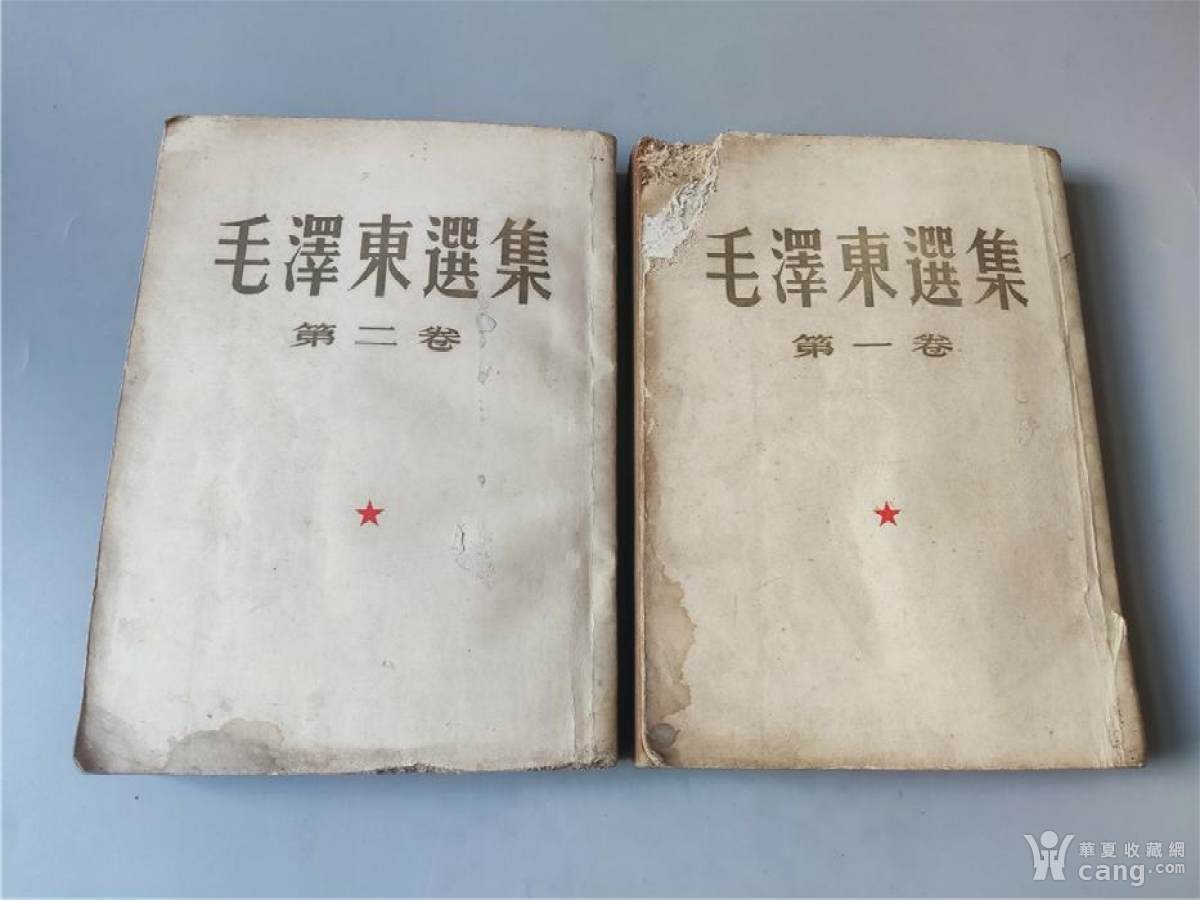 毛澤東選集
第二卷
毛澤東選集
第一卷
華夏收藏網
cang.com